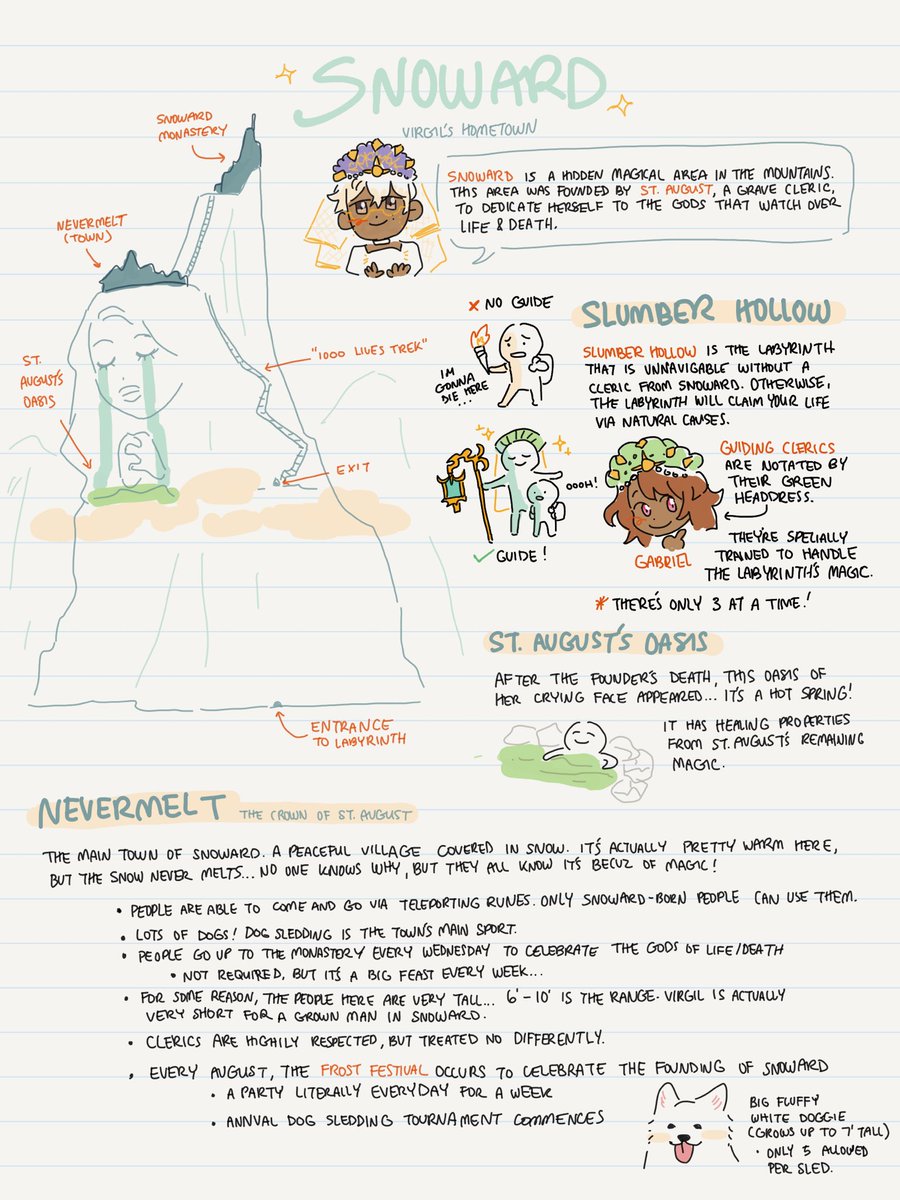 SNOWARD
VIRGIL'S HOMETOWN
SNOWARD IS A HIDDEN MAGICAL AREA IN THE MOUNTAINS.
THIS AREA WAS FOUNDED BY ST. AUGUST, A GRAVE CLERIC,
TO DEDICATE HERSELF TO THE GODS THAT WATCH OVER
LIFE & DEATH.
SNOWARD
MONASTERY
NEVERMELT
(TOWN)
ST.
AUGUST'S
OASIS
"1000 LIVES TREK"
EXIT
ENTRANCE
TO LABYRINTH
× NO GUIDE
I'M
GONNA
DIE HERE
...
OOOH!
✓ GUIDE!
SLUMBER HOLLOW
SLUMBER HOLLOW IS THE LABYRINTH
THAT IS UNNAVIGABLE WITHOUT A
CLERIC FROM SNOWARD. OTHERWISE,
THE LABYRINTH WILL CLAIM YOUR LIFE
VIA NATURAL CAUSES.
GUIDING CLERICS
ARE NOTATED BY
THEIR GREEN
HEADDRESS.
GABRIEL
THEY'RE SPECIALLY
TRAINED TO HANDLE
THE LABYRINTH'S MAGIC.
* THERE'S ONLY 3 AT A TIME!
ST. AUGUST'S OASIS
AFTER THE FOUNDER'S DEATH, THIS OASIS OF
HER CRYING FACE APPEARED... IT'S A HOT SPRING!
IT HAS HEALING PROPERTIES
FROM ST. AUGUST'S REMAINING
MAGIC.
NEVERMELT THE CROWN OF ST. AUGUST
THE MAIN TOWN OF SNOWARD. A PEACEFUL VILLAGE COVERED IN SNOW. IT'S ACTUALLY PRETTY WARM HERE,
BUT THE SNOW NEVER MELTS... NO ONE KNOWS WHY, BUT THEY ALL KNOW IT'S BECUZ OF MAGIC!
• PEOPLE ARE ABLE TO COME AND GO VIA TELEPORTING RUNES. ONLY SNOWARD-BORN PEOPLE CAN USE THEM.
• LOTS OF DOGS! DOG SLEDDING IS THE TOWN'S MAIN SPORT.
• PEOPLE GO UP TO THE MONASTERY EVERY WEDNESDAY TO CELEBRATE THE GODS OF LIFE/DEATH
• NOT REQUIRED, BUT IT'S A BIG FEAST EVERY WEEK...
• FOR SOME REASON, THE PEOPLE HERE ARE VERY TALL... 6'-10' IS THE RANGE. VIRGIL IS ACTUALLY
VERY SHORT FOR A GROWN MAN IN SNOWARD.
• CLERICS ARE HIGHLY RESPECTED, BUT TREATED NO DIFFERENTLY.
• EVERY AUGUST, THE FROST FESTIVAL OCCURS TO CELEBRATE THE FOUNDING OF SNOWARD
• A PARTY LITERALLY EVERYDAY FOR A WEEK
• ANNUAL DOG SLEDDING TOURNAMENT COMMENCES
BIG FLUFFY
WHITE DOGGIE
(GROWS UP TO 7' TALL)
• ONLY 5 ALLOWED
PER SLED.